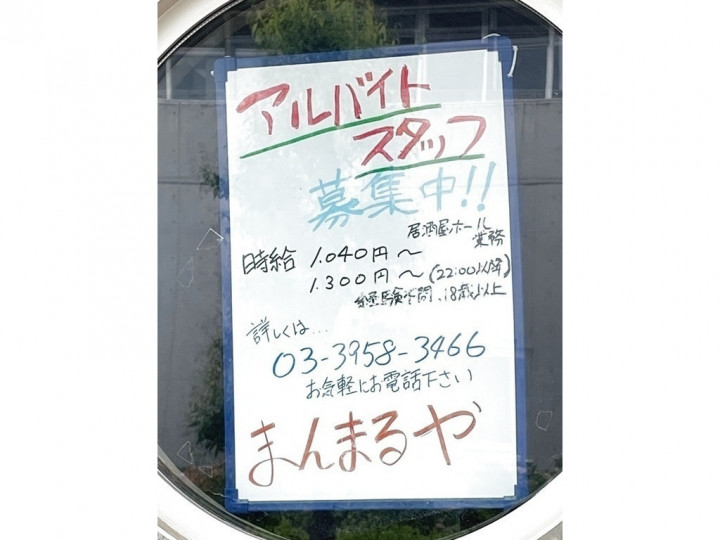 アルバイト
スタッフ
募集中!!
居酒屋ホール
業務
時給 1.040円〜
1.300円〜(22:00以降)
経験不問、18歳以上
詳しくは...
03-3958-3466
お気軽にお電話下さい
まんまるや